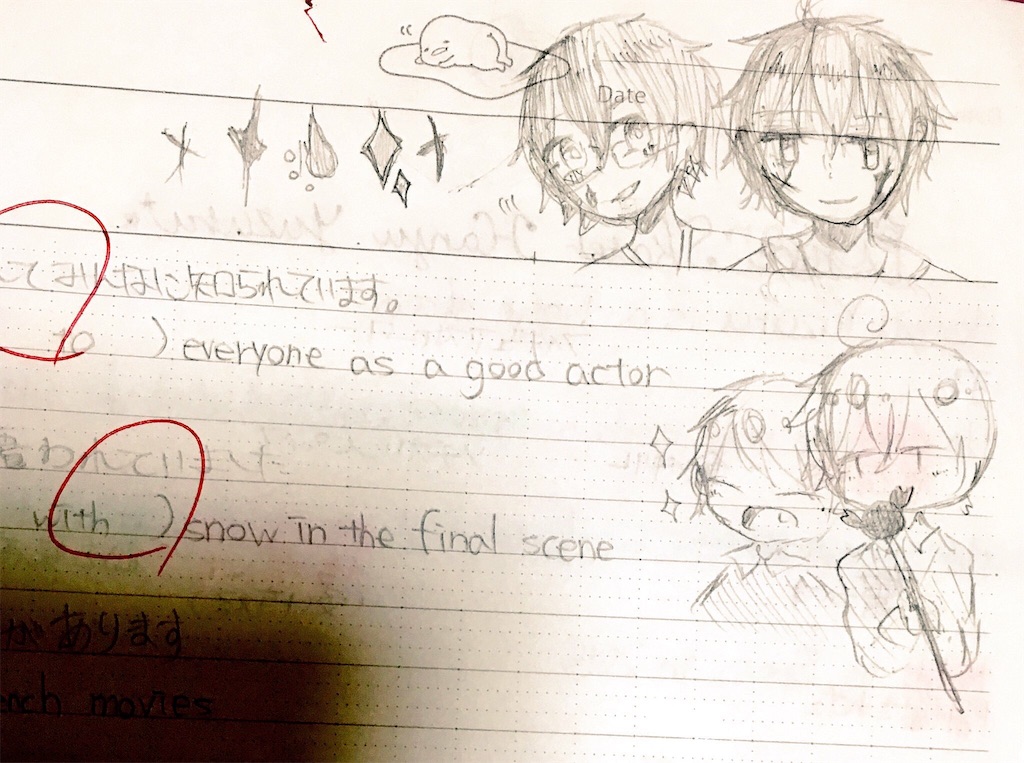 Date
てみんなに知られています。
to ) everyone as a good actor
われていました
with ) snow in the final scene
があります
movies